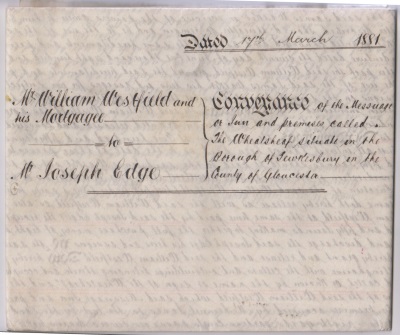 Dated 17th March 1881
Mr William Westfield and
his Mortgagee
to
Mr Joseph Edge
Conveyance of the Messuage
or Inn and premises called
The Wheatsheaf situate in the
Borough of Tewkesbury in the
County of Gloucester